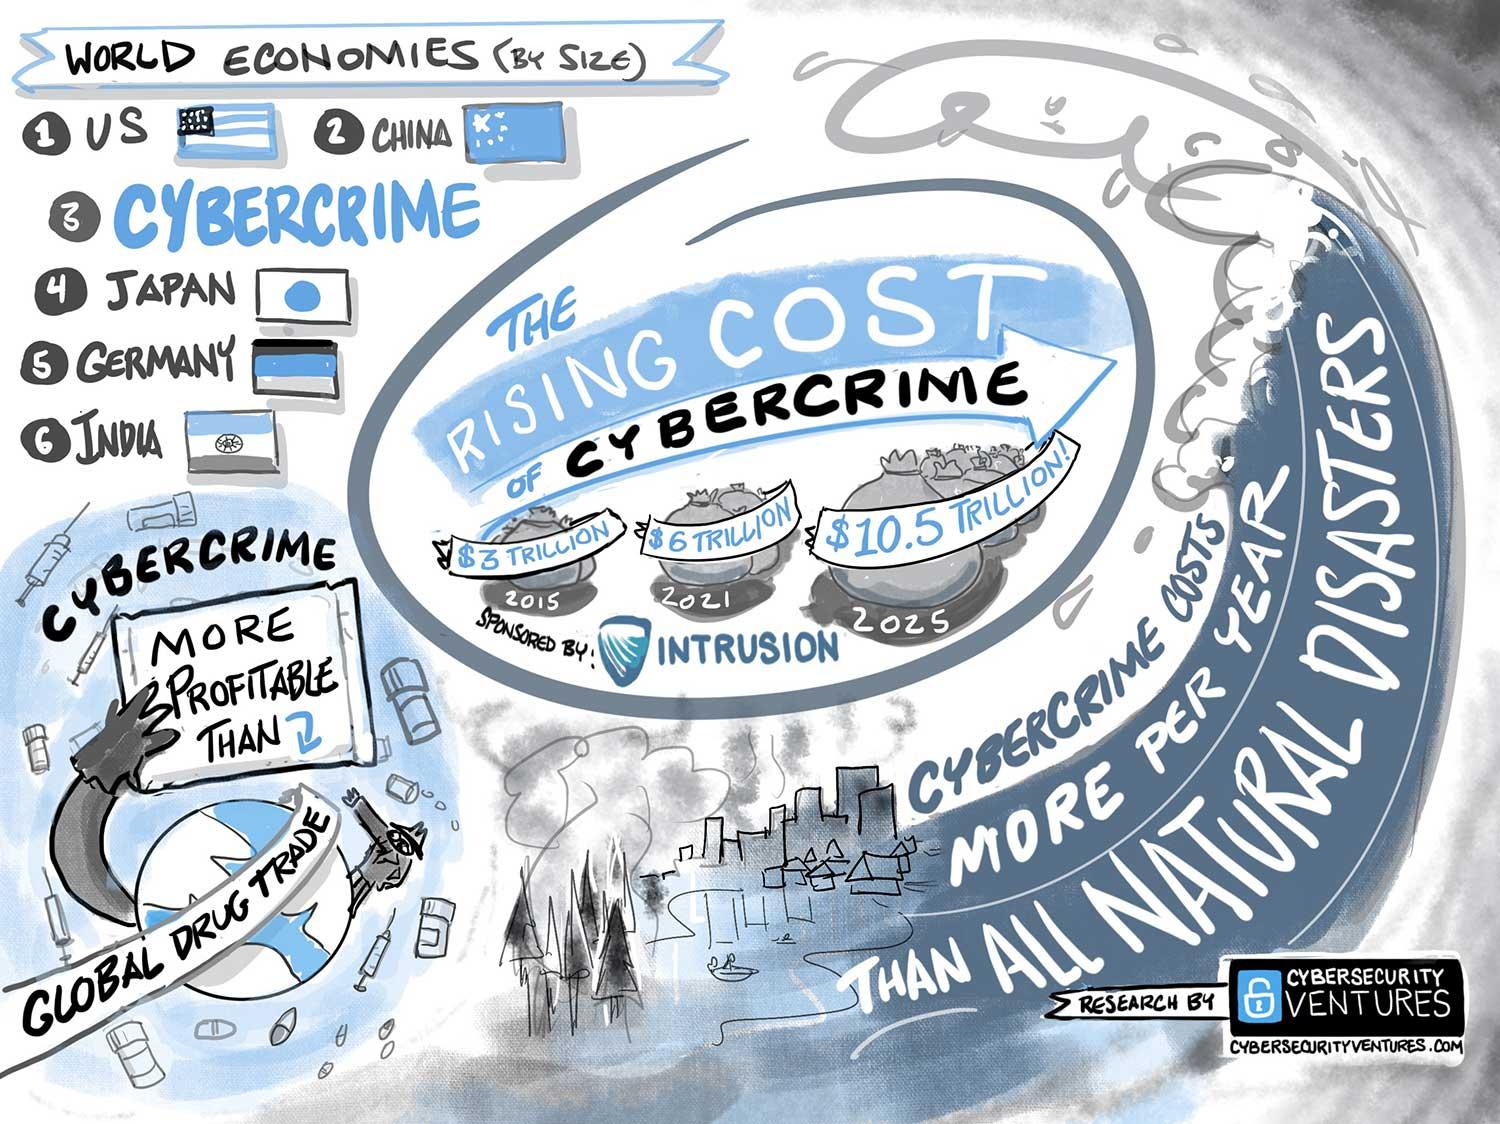 WORLD ECONOMIES (BY SIZE)
1 US
2 CHINA
3 CYBERCRIME
4 JAPAN
5 GERMANY
6 INDIA
THE
RISING COST
OF CYBERCRIME
$3 TRILLION
2015
$6 TRILLION
2021
$10.5 TRILLION!
2025
SPONSORED BY:
INTRUSION
CYBERCRIME
MORE
PROFITABLE
THAN
GLOBAL DRUG TRADE
CYBERCRIME COSTS
MORE PER YEAR
THAN ALL NATURAL DISASTERS
RESEARCH BY
CYBERSECURITY
VENTURES
CYBERSECURITYVENTURES.COM